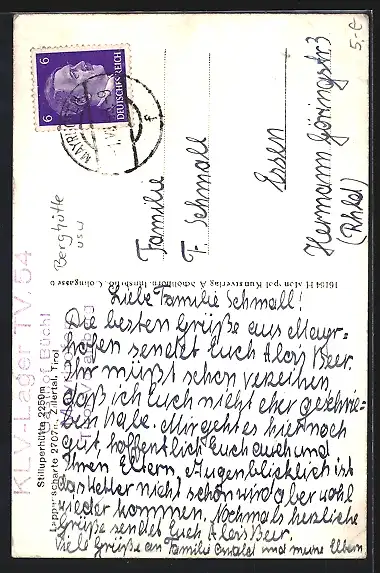 Liebe Familie Schmall!
Die besten Grüße aus Mayr-
hofen sendet Euch Alois Beer.
Ihr müßt schon verzeihen
daß ich Euch nicht eher geschrie-
ben habe. Mir geht es hier noch
gut, hoffentlich Euch auch und
Ihren Eltern. Augenblicklich ist
das Wetter nicht schön wird aber wohl
wieder kommen. Nochmals herzliche
Grüße sendet Euch Alois Beer.
Viele Grüße an Familie und meine Eltern
Familie
F. Schmall
Essen
Hermann Göringstr. 3
(Rhld)
5,-€
6 6
DEUTSCHES REICH
Berghütte
usw
KLV-Lager TV. 54
Stilluperhütte 2250m
Lappenscharte 2707m, Zillertal, Tirol